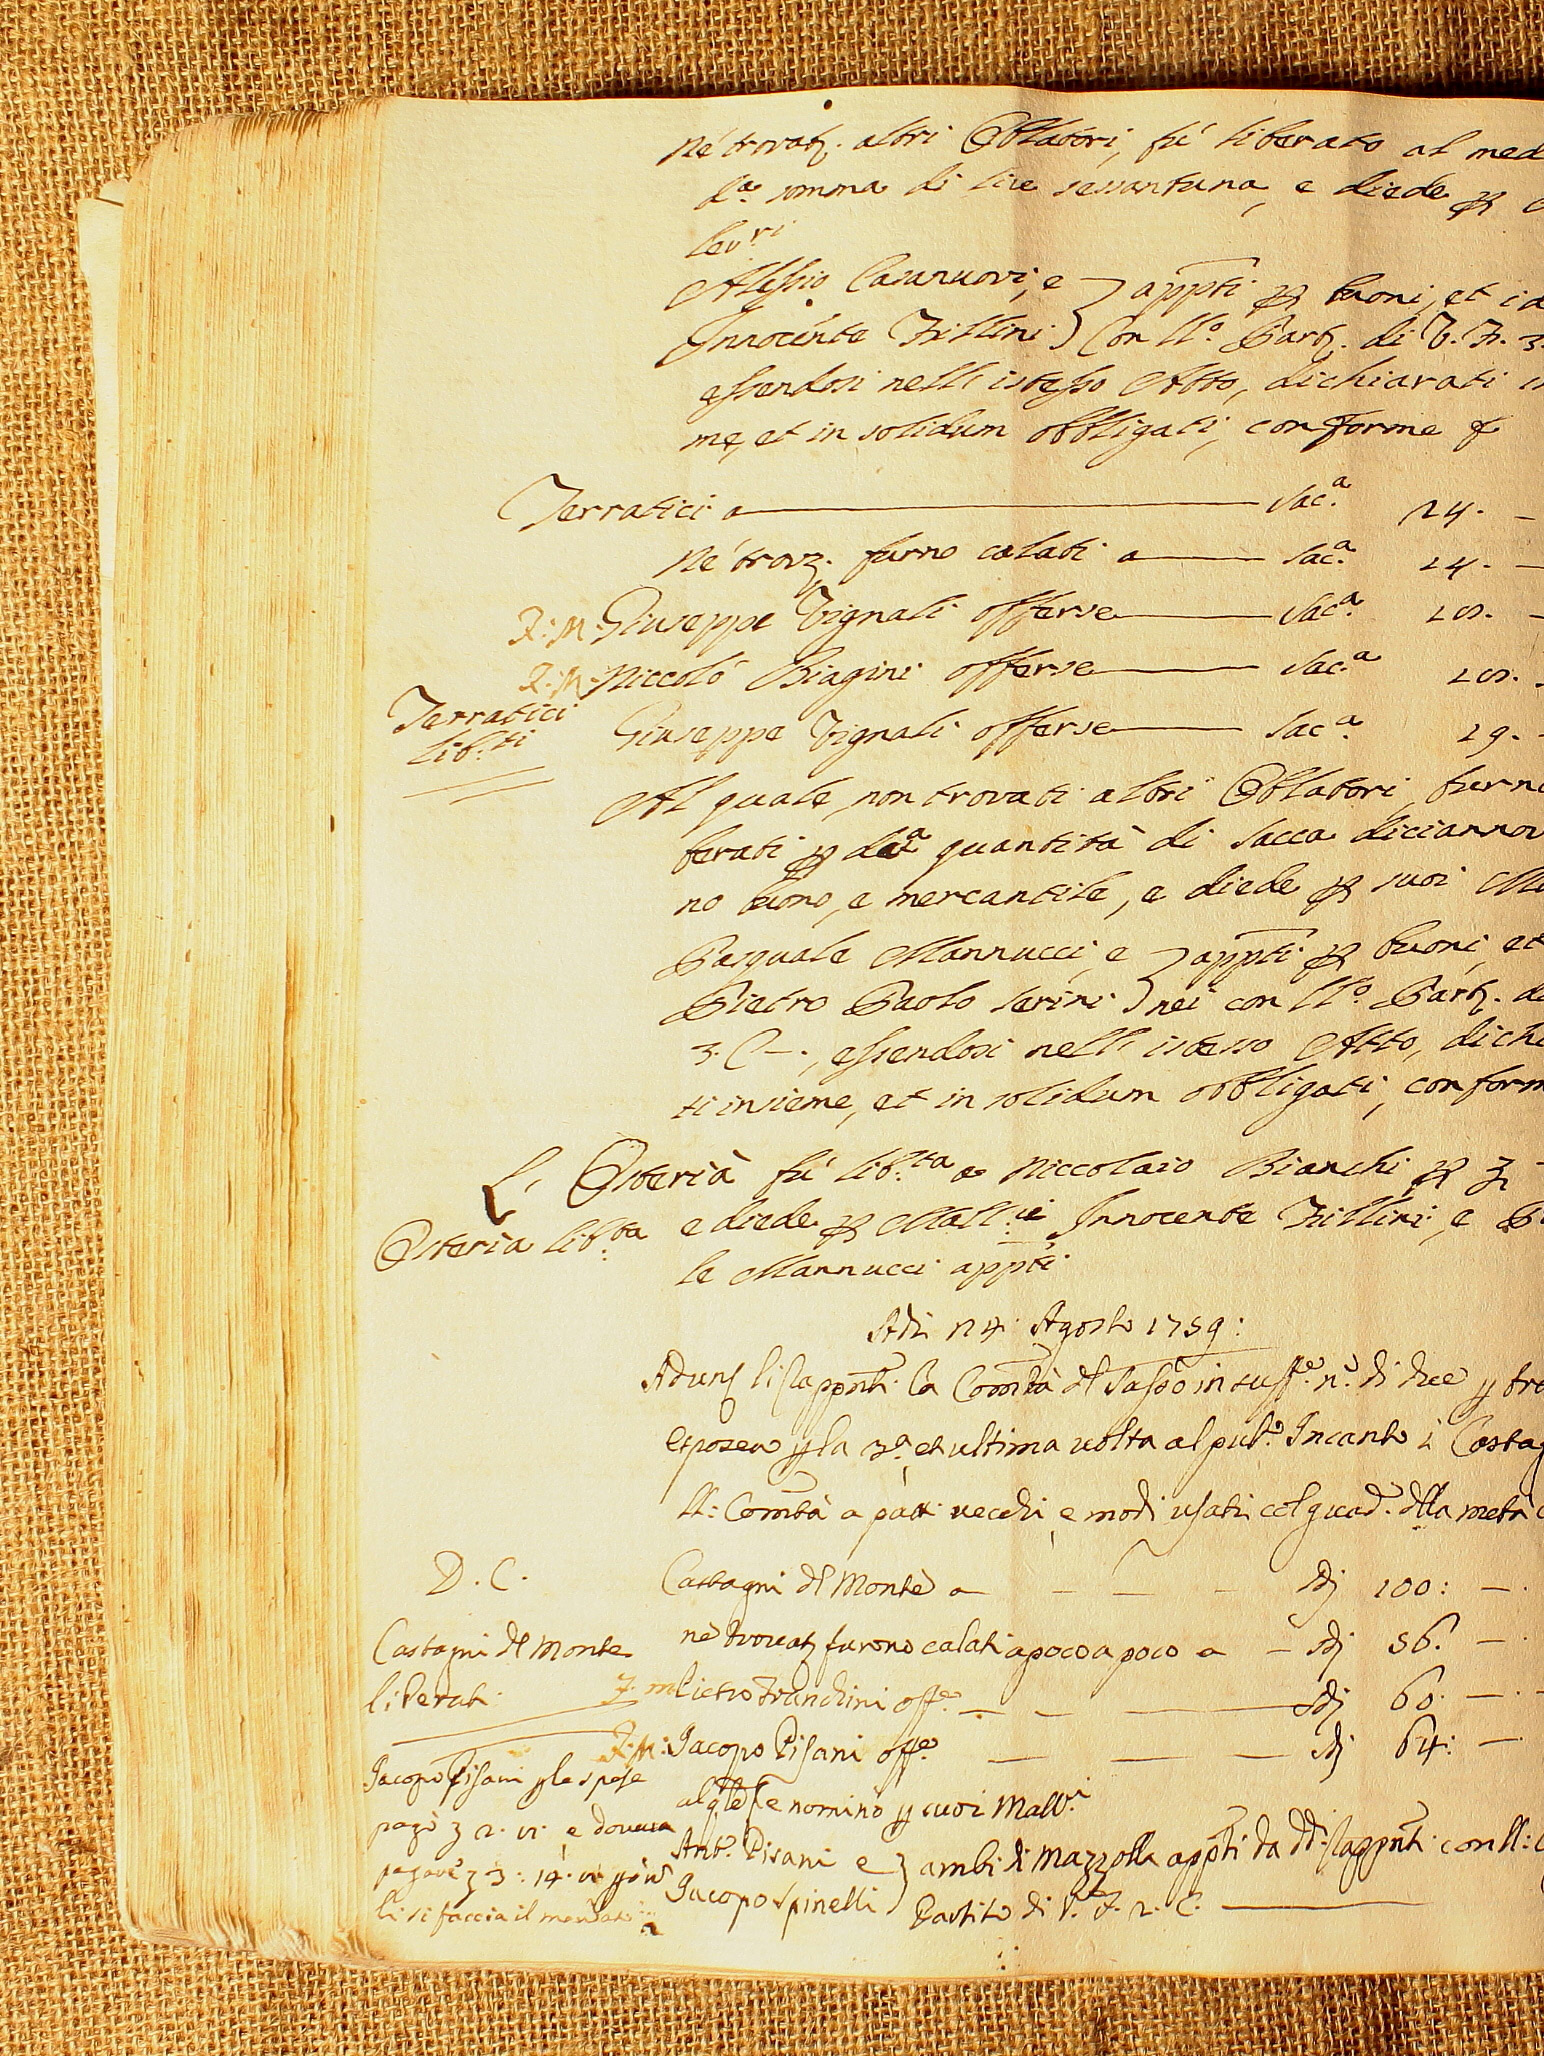 Né trovatj. altri Oblatori, fu' liberato al med
d.a somma di lire sessantuna, e diede p
lev.ri
Alessio Casanuovi, e } appti p buoni, et id
Innocente Frillini } Con ll.o Partj. di V. F. 3.
essendosi nell'istesso Atto, dichiarati in
me, et in solidum obbligati, conforme
Terratici a — Sac.a 24. —
Né trovz. furno calati a — Sac.a 14. —
F: M: Giuseppe Vignali offerse — Sac.a
F. M. Niccolò Biagini offerse — Sac.a
Terratici
lib.ti
Giuseppe Vignali offerse — Sac.a 19. -
Al quale, non trovati altri Oblatori, furno
berati p d.a quantità di Sacca diciannov
no buono, e mercantile, e diede p suoi Ma
Pasquale Mannucci, e } appti p buoni, et
Pietro Paolo Serini } nei con ll.o Partj. di
3. C—., essendosi nell'istesso Atto, dichi
ti insieme, et in solidum obbligati, conform
L' Osteria fu' lib.ta a Niccolaio Bianchi p
Osteria lib.ta
e diede p Mall.i Innocente Frillini, e P
le Mannucci appti
Adi 24 Agosto 1759:
Adunj li rappnti la Comtà dl Sasso in suff.e n.o di due p tre
esposero p la 3.a et ultima volta al pub.o Incanto i Castag
ll: Comtà a patti vecchi, e modi usati col guad. dlla metà
D. C. Castagni dl Monte a — — — — 100: —.
Castagni dl Monte
liberati:
né trovatj furono calati a poco a poco a — 56. —.
F. m Pietro Franchini off.e — — — 60. —.
F: M: Jacopo Pisani off.e — — — 64: —
Jacopo Pisani p le spese
pagò
e doveva
pagare
li si faccia il mandato
al qle se e nominò p suoi Mallv.i
Ant.o Pisani e } ambi di Mazzolla appti da dd: rappnti con ll:
Jacopo Spinelli } Partito di V. F. 2. C. —